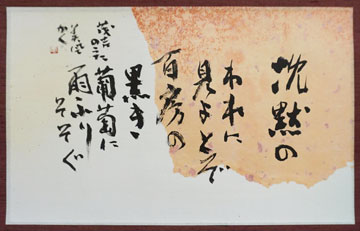 沈黙の
われに
見よとぞ
百房の
黒き
葡萄に
雨ふり
そそぐ
茂吉
のうた
かく